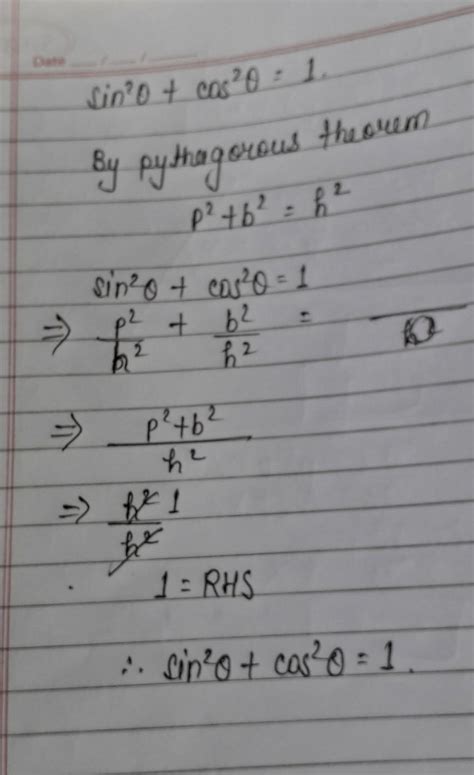 Date __/__/__
sin²θ + cos²θ = 1.
By pythagorous theorem
p² + b² = h²
sin²θ + cos²θ = 1
⇒ p²/h² + b²/h² =
⇒ p²+b²/h²
⇒ h²/h² 1
1 = RHS
∴ sin²θ + cos²θ = 1.